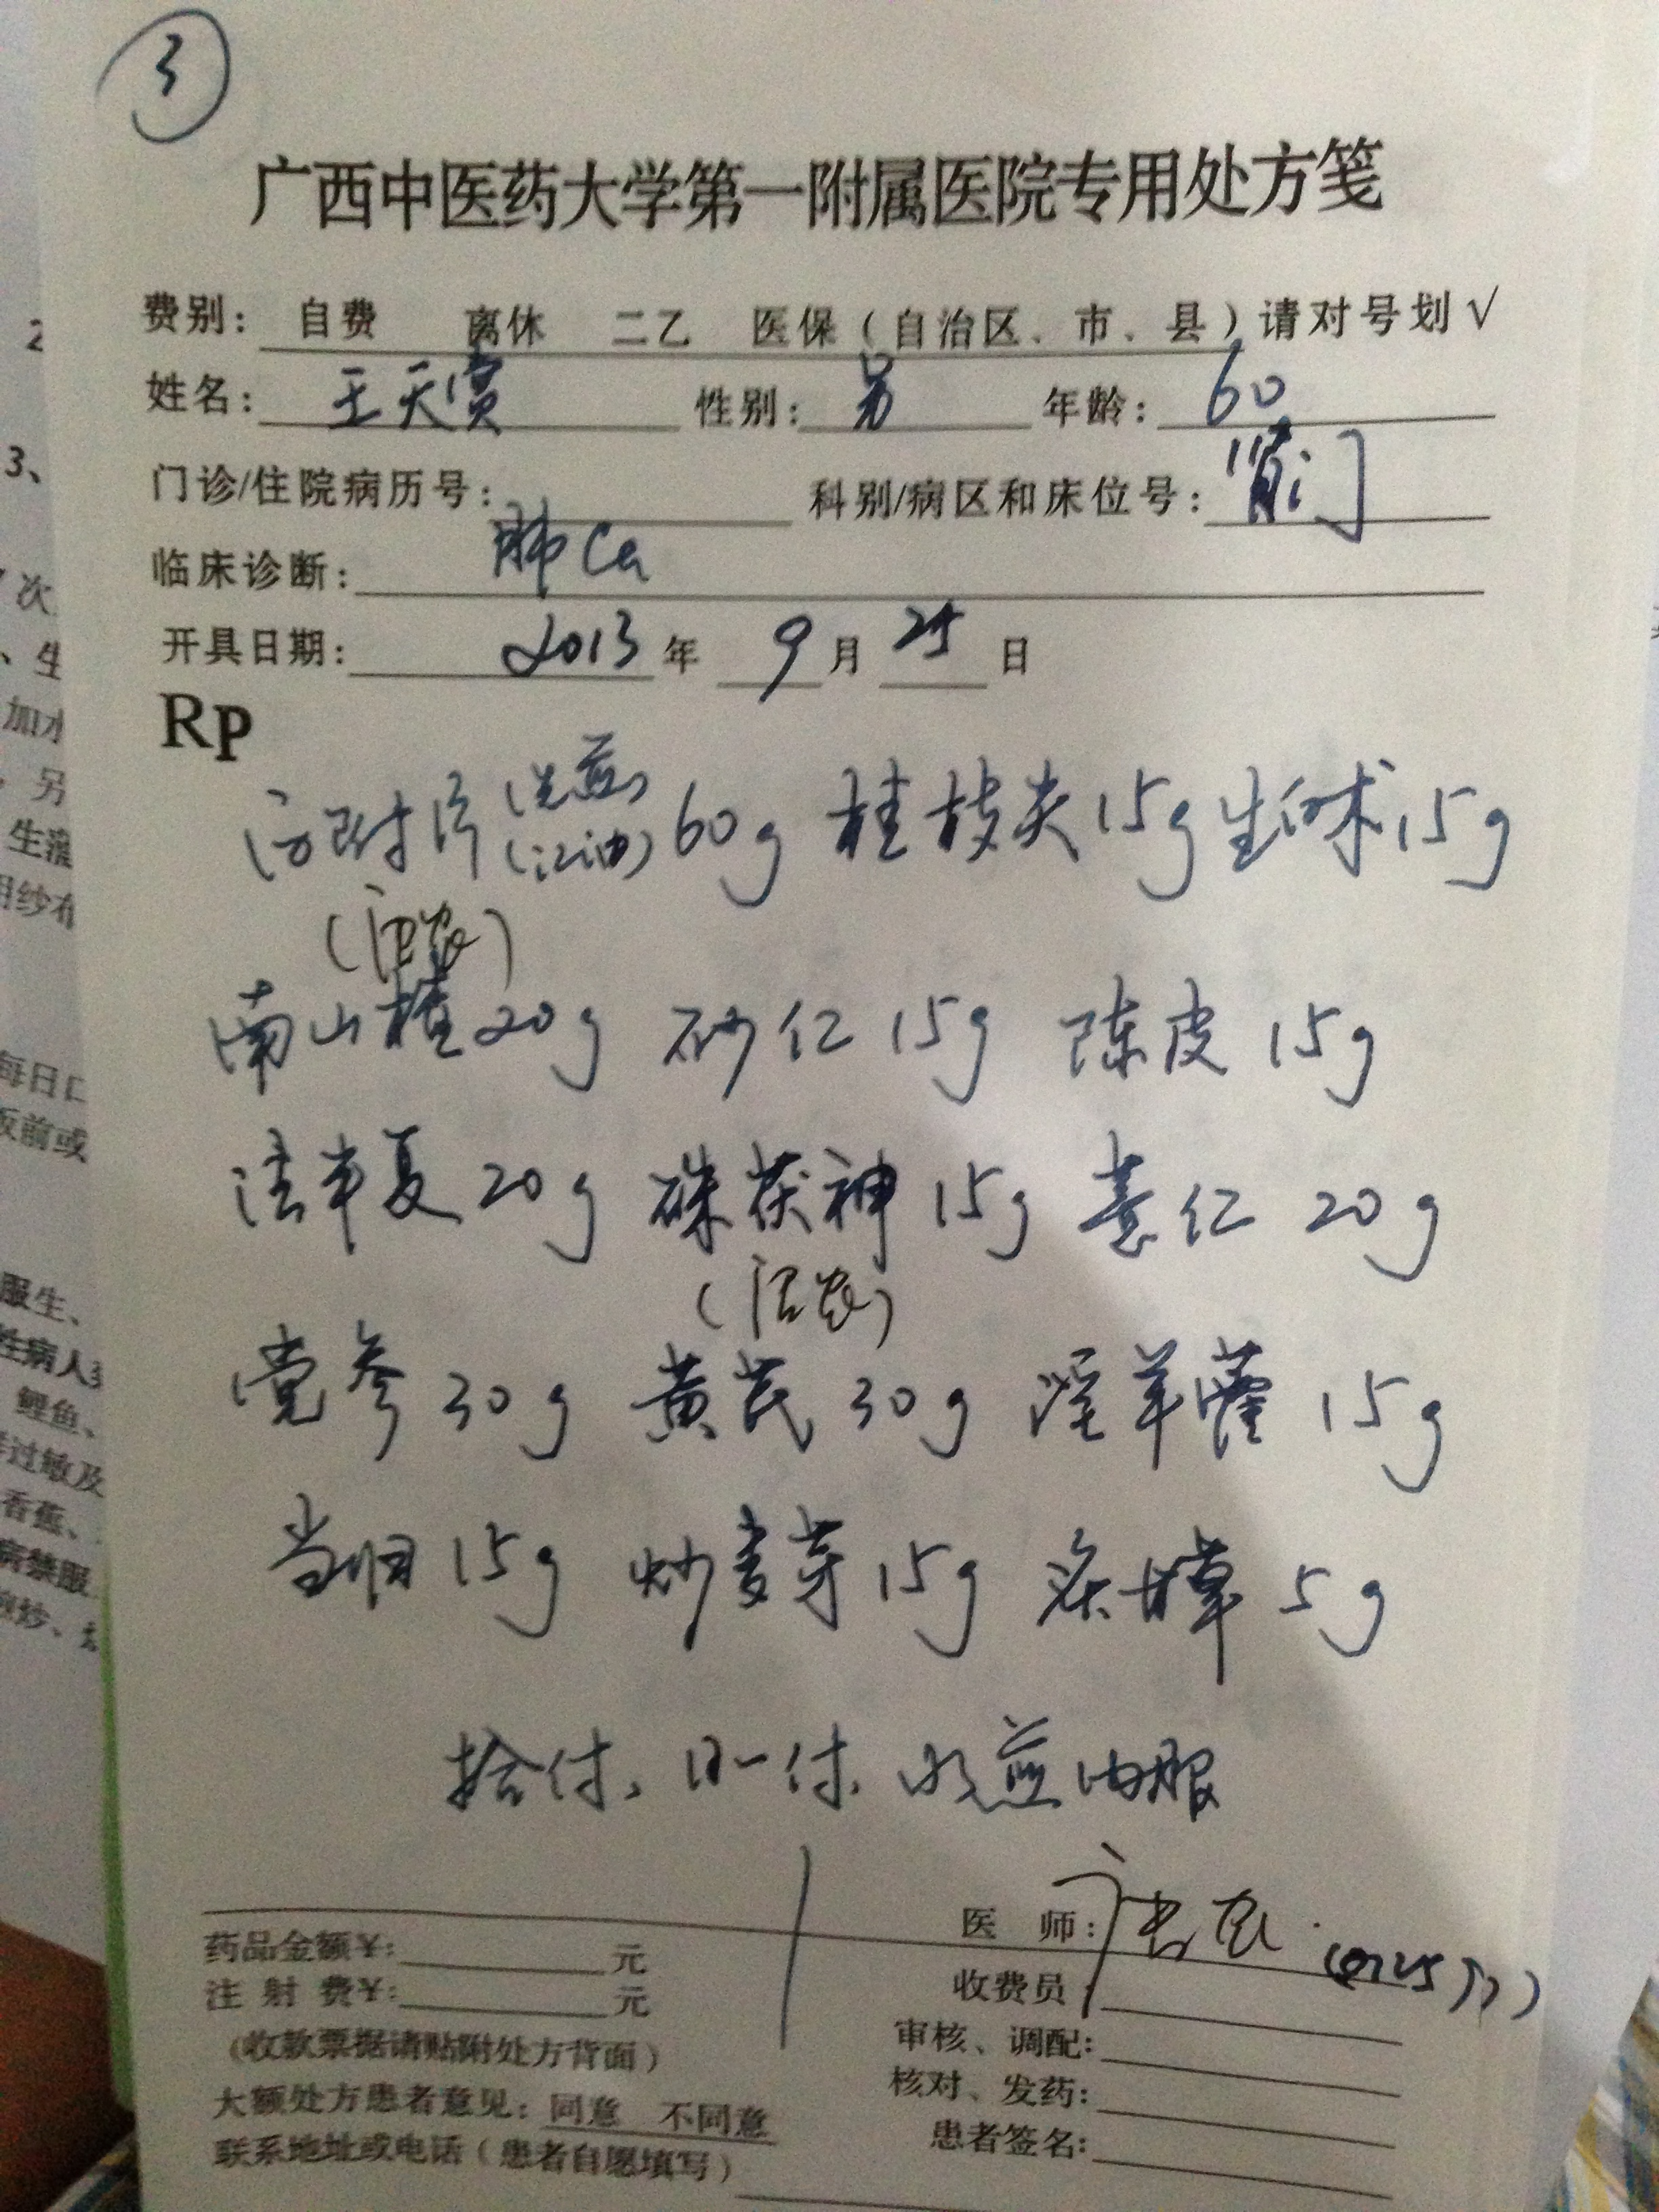 3
广西中医药大学第一附属医院专用处方笺
费别: 自费 离休 二乙 医保(自治区、市、县)请对号划√
姓名: 王天赏 性别: 男 年龄: 60
门诊/住院病历号: 科别/病区和床位号: 门
临床诊断: 肺Ca
开具日期: 2013 年 9 月 25 日
RP
附片(先煎)(江油)60g 桂枝尖15g 生白术15g
南山楂20g 砂仁15g 陈皮15g
法半夏20g 硃茯神15g 薏仁20g
党参30g 黄芪30g 淫羊藿15g
当归15g 炒麦芽15g 炙甘草5g
拾付、日一付、水煎内服
医 师:
药品金额¥: 元
收费员:
注射费¥: 元
审核、调配:
(收款票据请贴附处方背面)
核对、发药:
大额处方患者意见: 同意 不同意
患者签名:
联系地址或电话(患者自愿填写)
2
3、
次
、生
加水
另
生
用纱布
每日口
饭前或
服生、
性病人
鲤鱼、
过敏及
香蕉、
病禁服